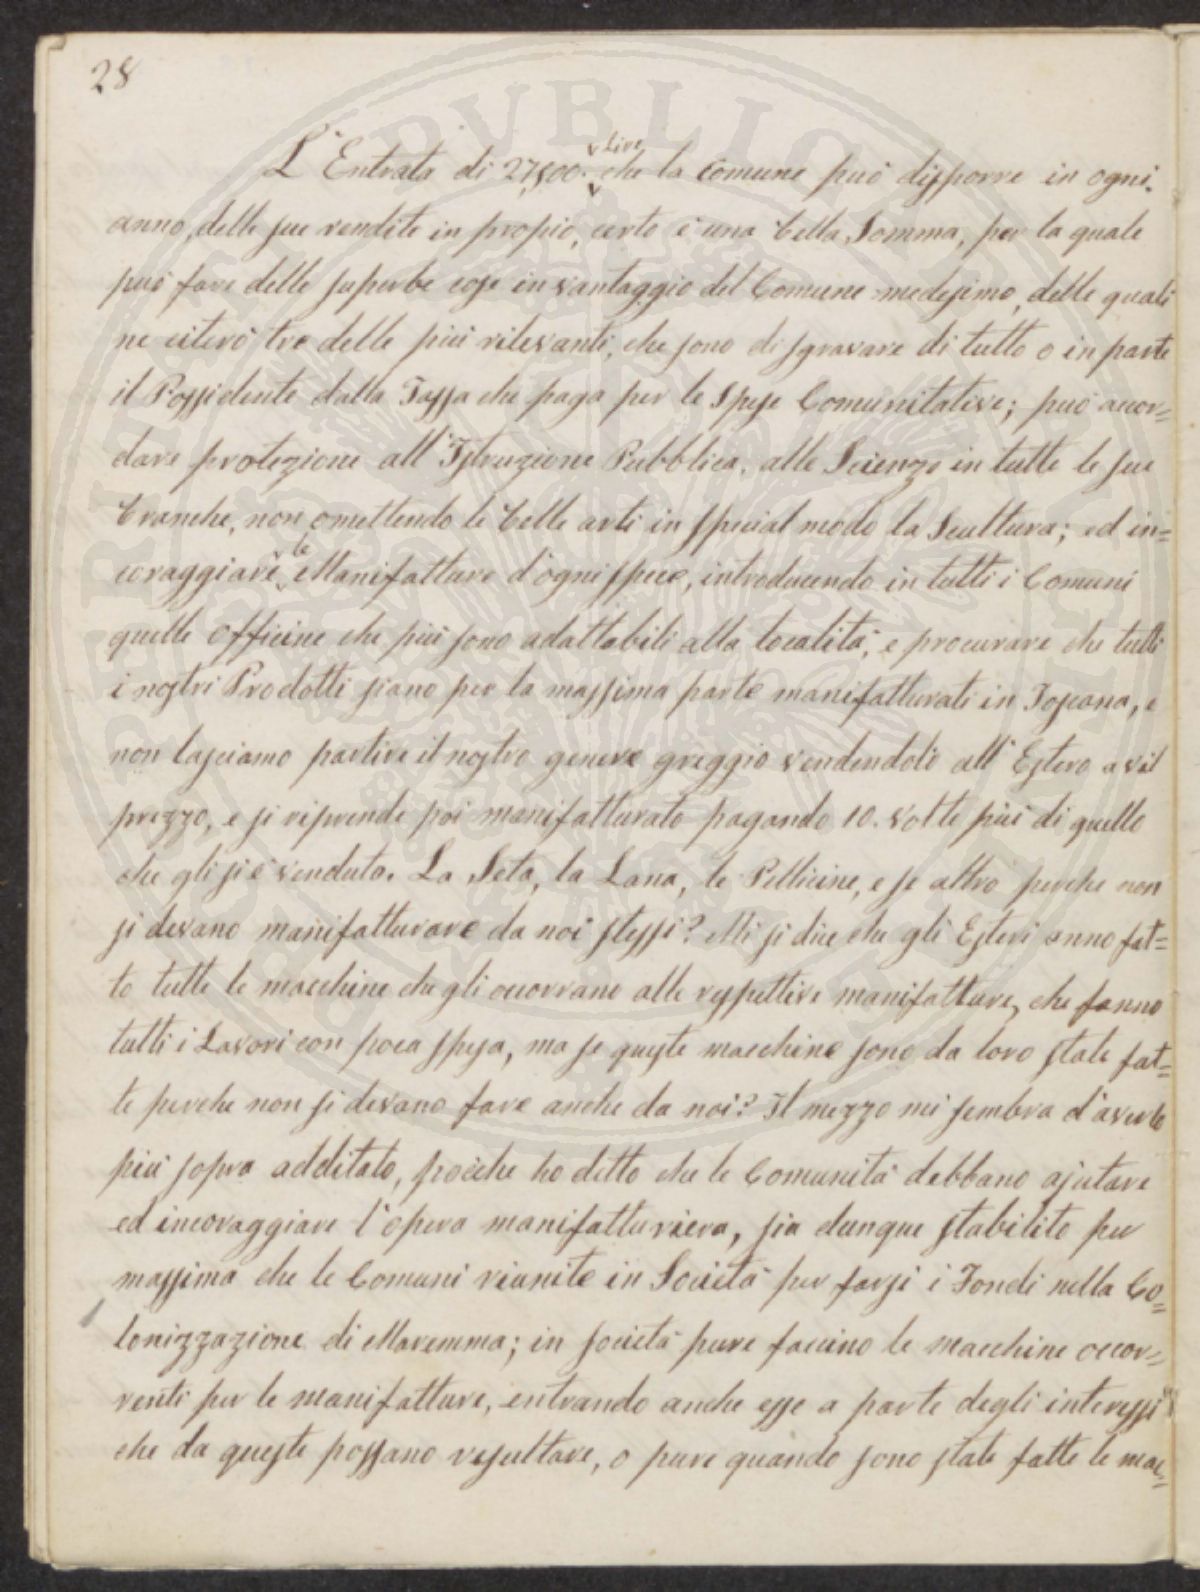 28
L'Entrata di 27,500. Lire che la Comune può disporre in ogni
anno, delle sue rendite in propio, certo è una bella Somma, per la quale
può fare delle superbe cose in vantaggio del Comune medesimo, delle quali
ne citerò tre delle più rilevanti, che sono di sgravare di tutto o in parte
il Possidente dalla Tassa che paga per le Spese Comunitative; può accor=
dare protezione all'Istruzione Pubblica, alle Scienze in tutte le sue
branche, non omettendo le belle arti in special modo la Scultura; ed in=
coraggiare le Manifatture d'ogni specie, introducendo in tutti i Comuni
quelle Officine che più sono adattabili alla località, e procurare che tutti
i nostri Prodotti siano per la massima parte manifatturati in Toscana, e
non lasciamo partire il nostro genere greggio vendendolo all'Estero a vil
prezzo, e si riprende poi manifatturato pagando 10. volte più di quello
che gli si è venduto. La Seta, la Lana, le Pelliccine, e se altro perche non
si devano manifatturare da noi stessi? Mi si dice che gli Esteri anno fat=
to tutte le macchine che gli occorrano alle respettive manifatture, che fanno
tutti i Lavori con poca spesa, ma se queste macchine sono da loro state fat=
te perche non si devano fare anche da noi? Il mezzo mi sembra d'averlo
più sopra additato, poiche ho detto che le Comunità debbano ajutare
ed incoraggiare l'opera manifatturiera, sia dunque stabilito per
massima che le Comuni riunite in Società per farsi i Fondi nella Co=
lonizzazione di Maremma; in società pure faccino le macchine occor=
renti per le manifatture, entrando anche esse a parte degli interessi
che da queste possano resultare, o pure quando sono state fatte le mac=